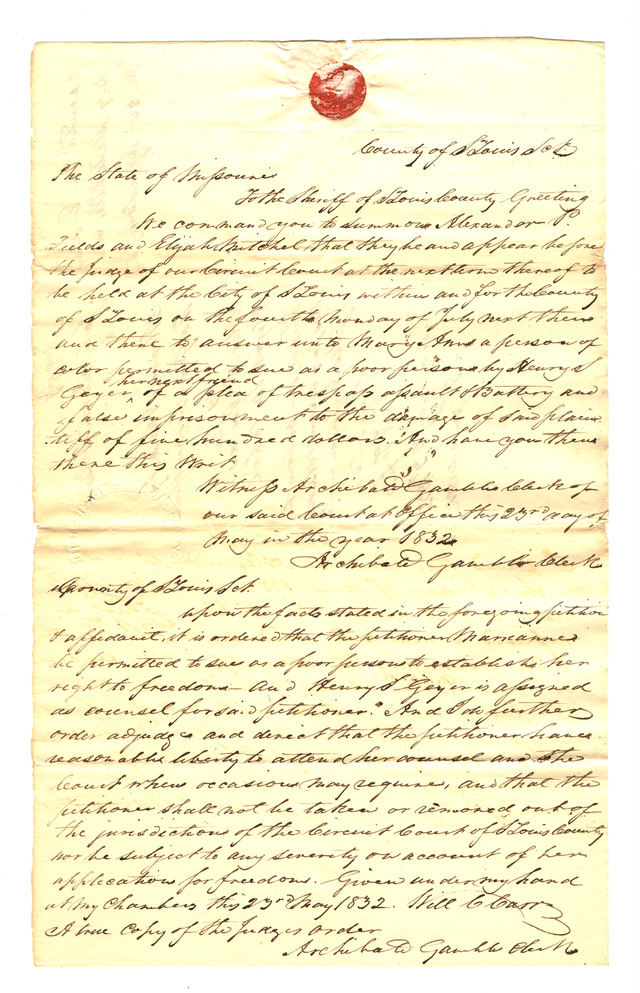 County of St Louis Sct.
The State of Missouri
To the Sheriff of St Louis County Greeting
We command you to summon Alexander P.
Fields and Elijah Mitchel that they be and appear before
the Judge of our Circuit Court at the next term thereof to
be held at the City of St Louis within and for the County
of St Louis on the fourth Monday of July next then
and there to answer unto Mary Ann a person of
color permitted to sue as a poor person by Henry S
Geyer her next friend, of a plea of trespass assault & Battery and
false imprisonment to the damage of said plain
tiff of five hundred dollars. And have you then
there this Writ
Witness Archibald Gamble Clerk of
our said Court at Office this 23rd day of
May in the year 1832
Archibald Gamble Clerk
County of St Louis Sct.
upon the facts stated in the foregoing petition
& affidavit, it is ordered that the petitioner Marianne
be permitted to sue as a poor person to establish her
right to freedom – And Henry S Geyer is assigned
as counsel for said petitioner." And I do further
order adjudge and direct that the petitioner have
reasonable liberty to attend her counsel and the
Court when occasion may require, and that the
petitioner shall not be taken or removed out of
the jurisdiction of the Circuit Court of St Louis County
nor be subject to any severity on account of her
application for freedom. Given under my hand
at my Chambers this 23rd May 1832. Will C Carr
A true copy of the Judges order
Archibald Gamble Clerk